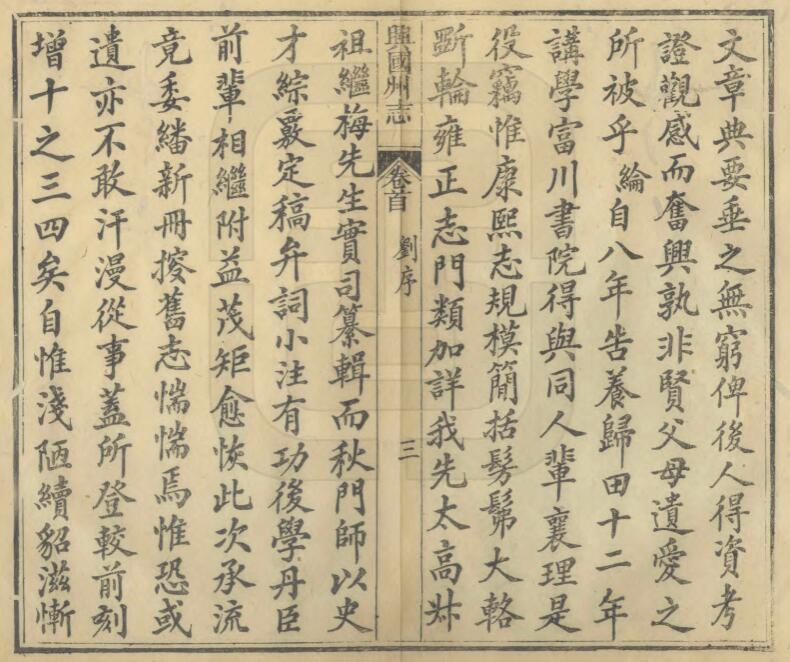 文章典要垂之無窮俾後人得資考
證觀感而奮興孰非賢父母遺愛之
所被乎綸自八年告養歸田十二年
講學富川書院得與同人輩襄理是
役竊惟康熙志規模簡括髣髴大輅
斲輪雍正志門類加詳我先太高叔
興國州志
卷首
劉序
三
祖繼梅先生實司纂輯而秋門師以史
才綜覈定稿弁詞小注有功後學丹臣
前輩相繼附益茂矩愈恢此次承流
竟委繙新冊挍舊志惴惴焉惟恐或
遺亦不敢汗漫從事蓋所登較前刻
增十之三四矣自惟淺陋續貂滋慚